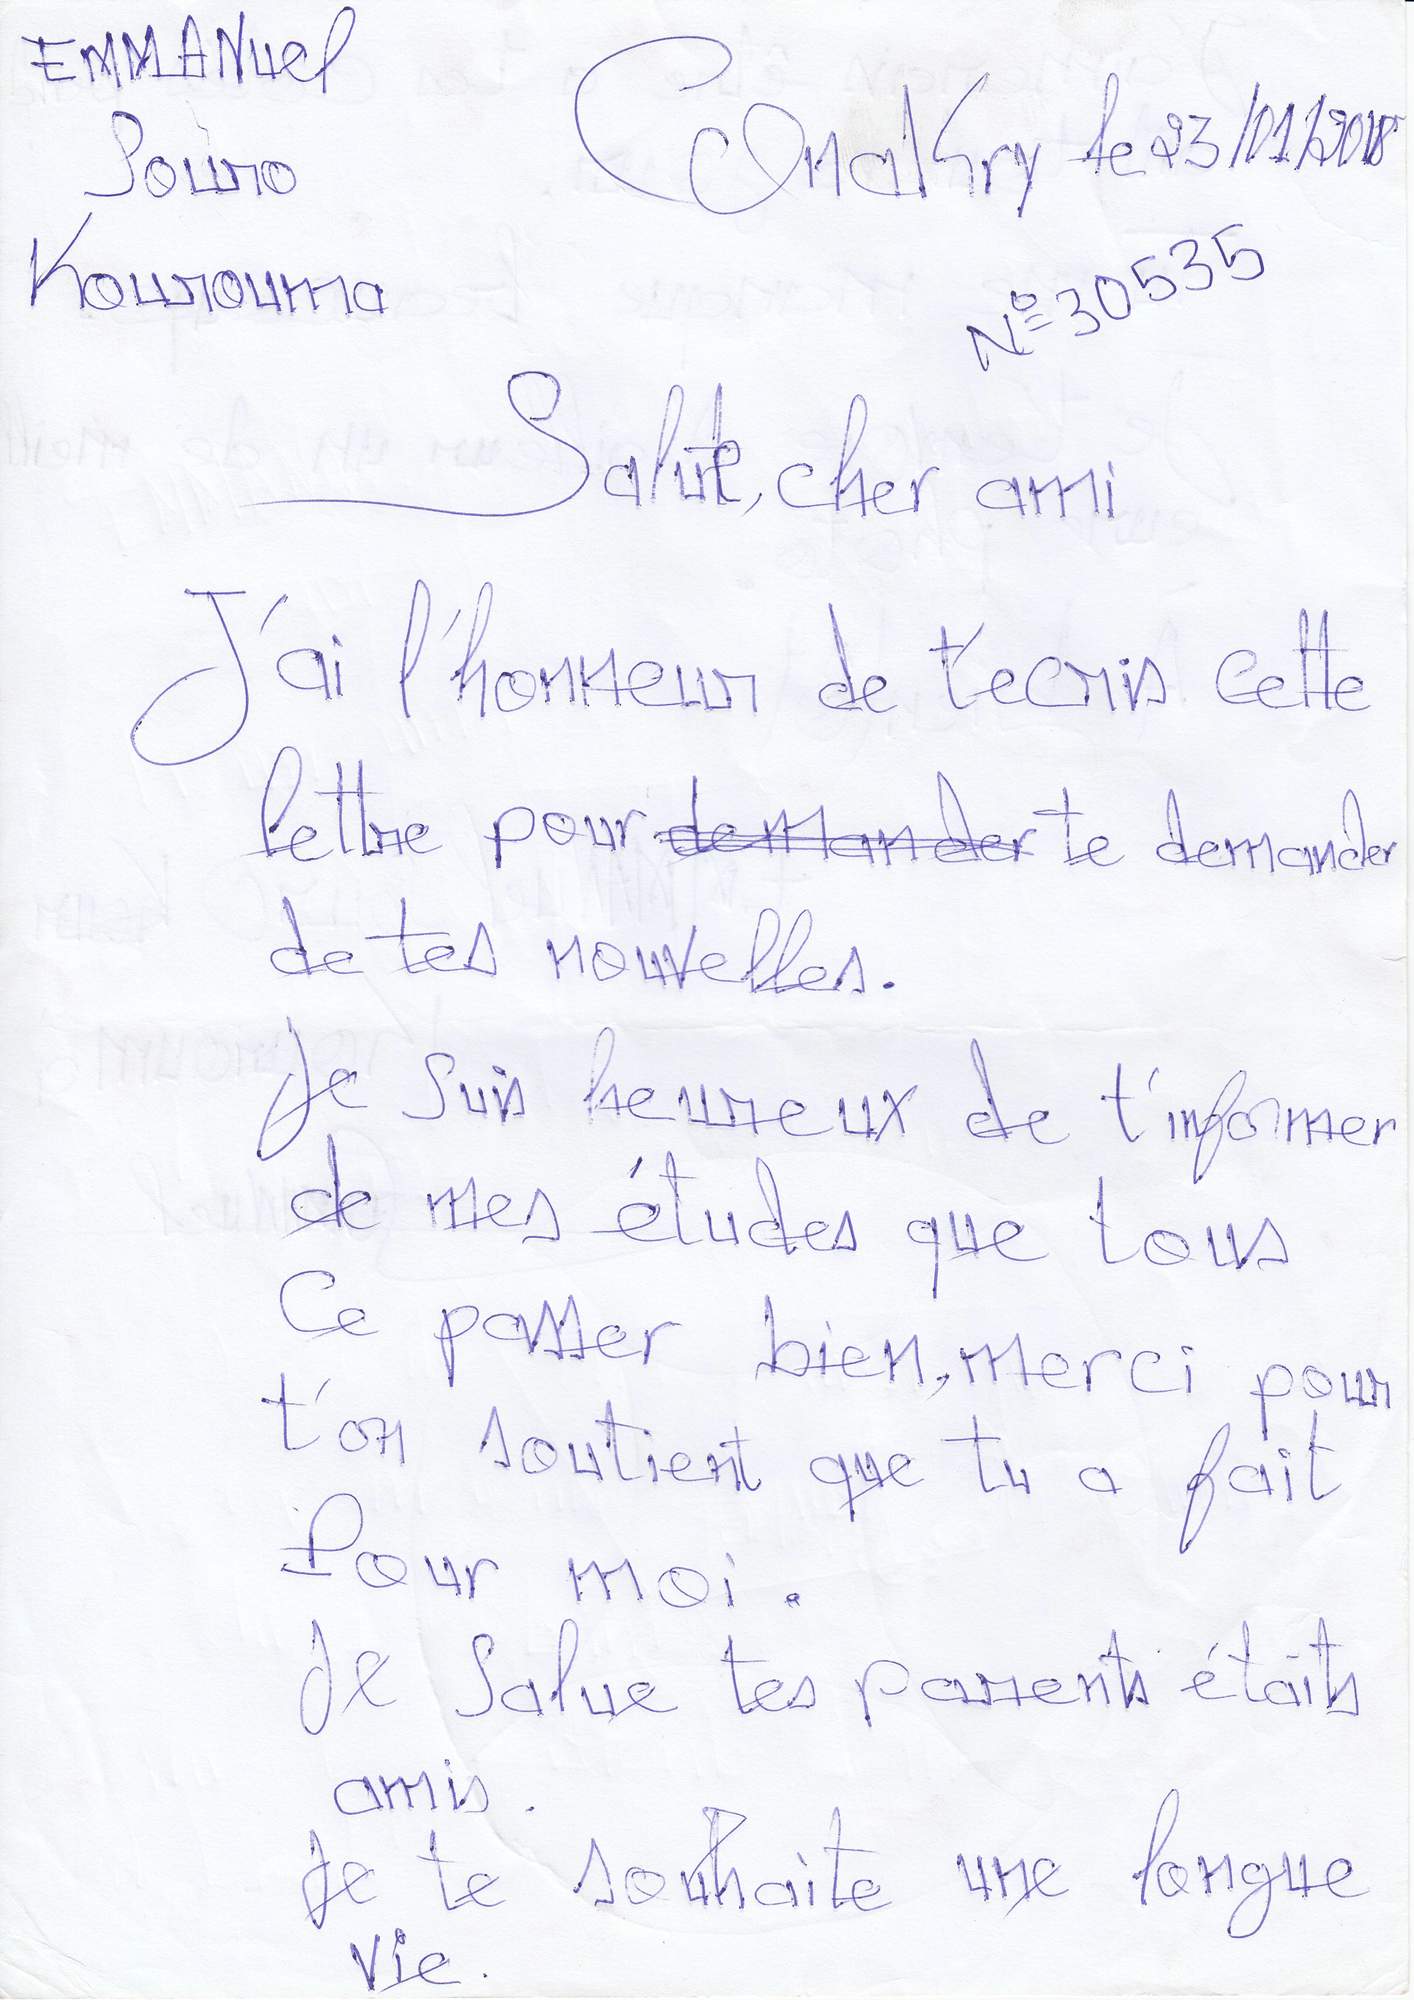 EMMANUEL
Souro
Kourouma
Conakry le 23/01/2018
N° 30535
Salut, cher ami
J'ai l'honneur de t'ecris cette
lettre pour demander te demander
de tes nouvelles.
Je suis heureux de t'informer
de mes études que tous
Ce passer bien, merci pour
t'on soutient que tu a fait
Pour moi.
Je Salue tes parents étaits
amis.
Je te souhaite une longue
vie.